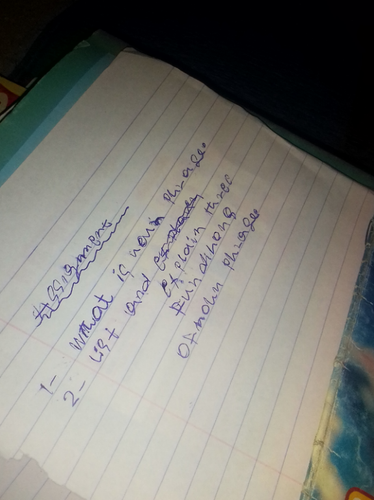 Assignment
1- What is noun phrase
2- List and
explain three
Functions
of noun phrase